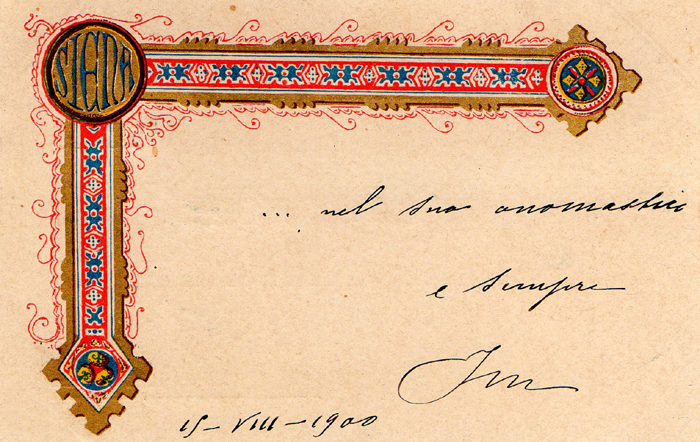 SIENA
... nel suo onomastico
e sempre
15-VIII-1900